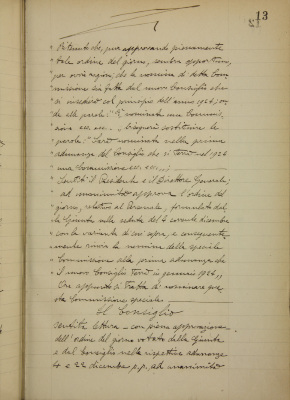 13
" Ritenuto che, pur approvando pienamente
" tale ordine del giorno, sembra opportuno,
" per ovvie ragioni, che la nomina di detta Com-
" missione sia fatta dal nuovo Consiglio che
" si insedierà col principio dell'anno 1926, on-
" de alle parole: " È nominata una Commis-
" sione ecc. ecc. „ bisognerà sostituire le
" parole: " Sarà nominata nella prima
" adunanza del Consiglio che si terrà nel 1926
" una Commissione ecc. ecc. „
" Sentiti il Presidente e il Direttore Generale;
" ad unanimità approva l'ordine del
" giorno, relativo al Personale, formulato dal-
" la Giunta nella seduta del 4 corrente dicembre
" con la variante di cui sopra, e conseguente-
" mente rinvia la nomina della speciale
" Commissione alla prima adunanza che
" il nuovo Consiglio terrà in gennaio 1926 „
Ora appunto si tratta di nominare que-
sta Commissione speciale.
Il Consiglio
Sentita lettura - con piena approvazione
dell'ordine del giorno votato dalla Giunta
e dal Consiglio nelle rispettive adunanze
4 e 22 dicembre p.p. ad unanimità